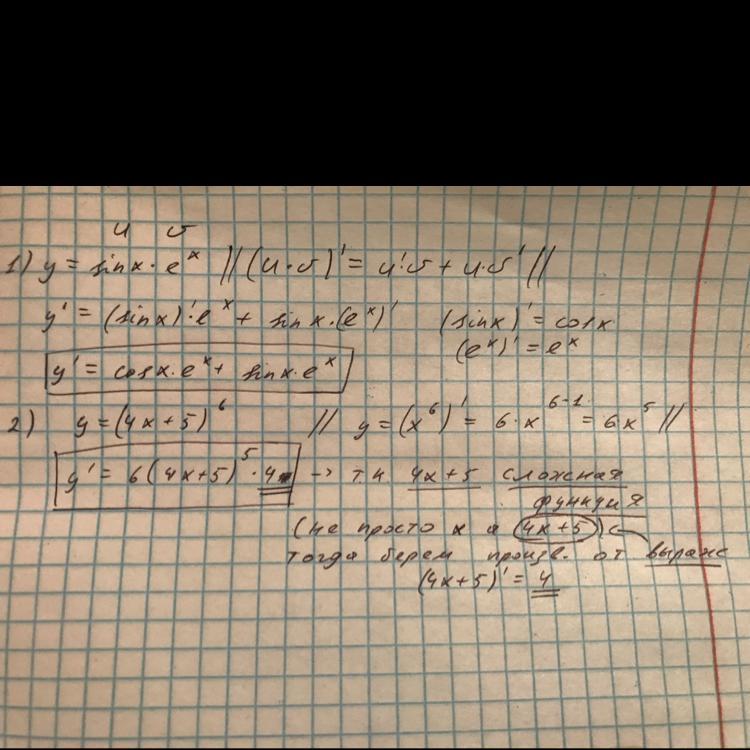 u v
1) y = sinx · e^x // (u·v)' = u'v + u·v' //
y' = (sinx)'·e^x + sinx·(e^x)' (sinx)' = cosx
(e^x)' = e^x
y' = cosx·e^x + sinx·e^x
2) y = (4x+5)^6 // y = (x^6)' = 6·x^6-1 = 6x^5 //
y' = 6(4x+5)^5·4 -> т.к 4x+5 сложная
функция
(не просто x а 4x+5)
тогда берем произв. от выраже
(4x+5)' = 4